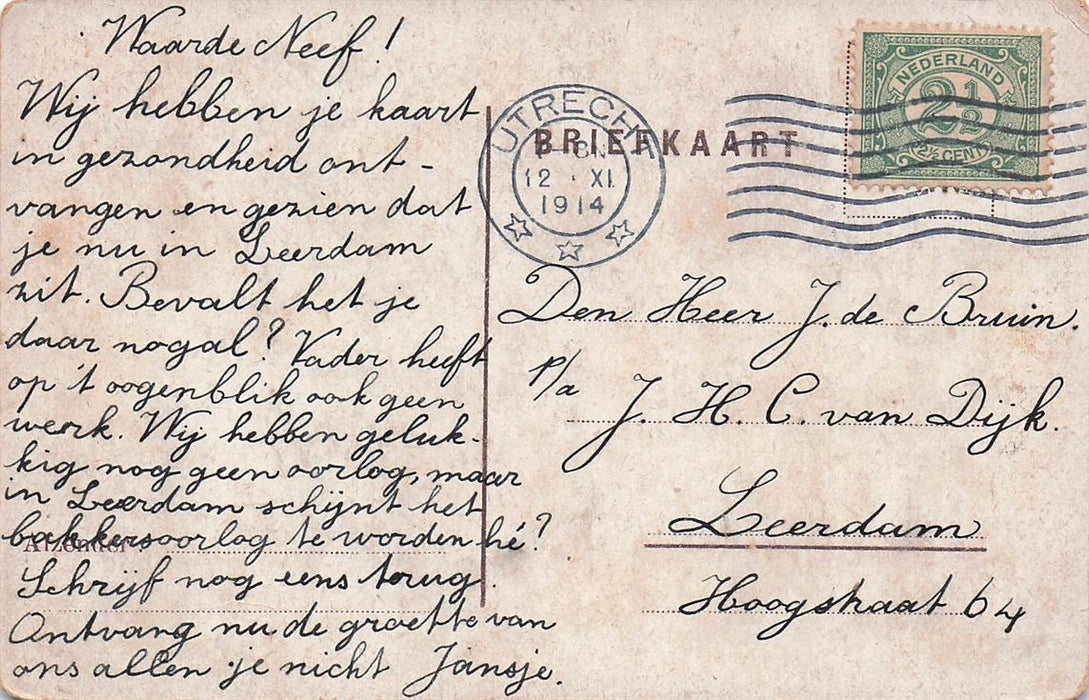 Waarde Neef!
Wij hebben je kaart
in gezondheid ont-
vangen en gezien dat
je nu in Leerdam
zit. Bevalt het je
daar nogal? Vader heeft
op 't oogenblik ook geen
werk. Wij hebben geluk-
kig nog geen oorlog, maar
in Leerdam schijnt het
bakkersoorlog te worden hé?
Schrijf nog eens terug.
Ontvang nu de groette van
ons allen je nicht Jansje.
Afzender
BRIEFKAART
UTRECHT
12 XI
1914
NEDERLAND
2½
(2½ CENT)
Den Heer J. de Bruin.
p/a J. H. C. van Dijk.
Leerdam
Hoogstraat 64